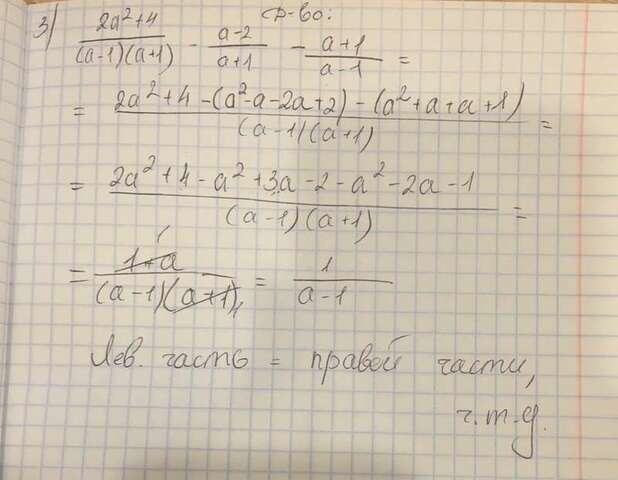 3) Д-во:
(2a²+4)/((a-1)(a+1)) - (a-2)/(a+1) - (a+1)/(a-1) =
= (2a²+4-(a²-a-2a+2)-(a²+a+a+1))/((a-1)(a+1)) =
= (2a²+4-a²+3a-2-a²-2a-1)/((a-1)(a+1)) =
= (1+a)/((a-1)(a+1)) = 1/(a-1)
Лев. часть = правой части,
ч.т.д.